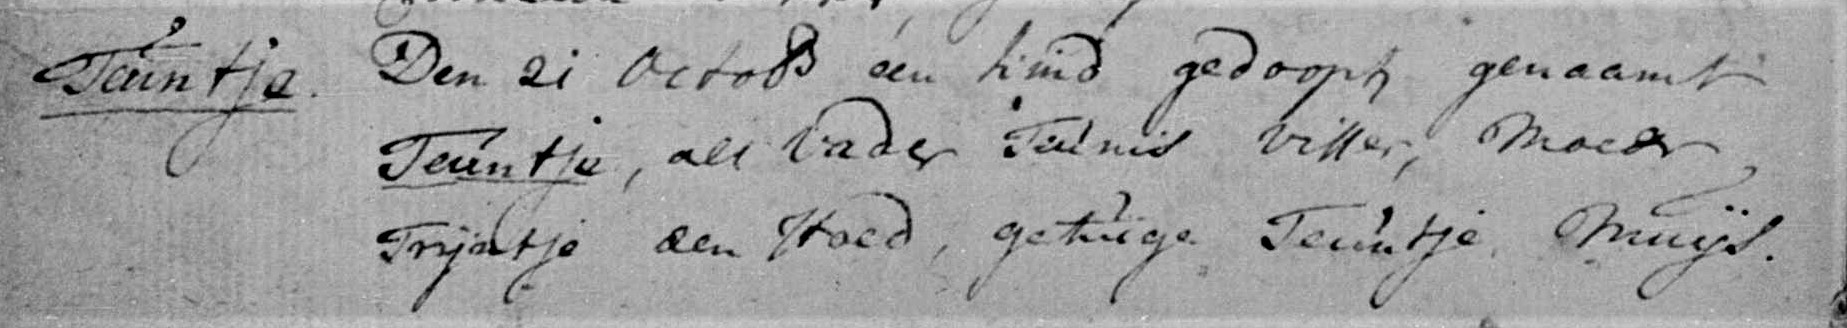 Teuntje. Den 21 Octob een kind gedoopt genaamt
Teuntje, als Vader Teunis Visser, Moeder
Trijntje den Hoed, getuige Teuntje Muijs.